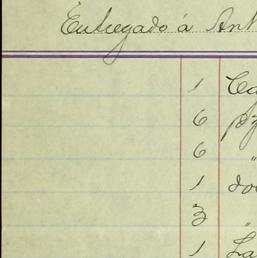 Entregado á Ant
1 Ca
6 pz
6 "
1 do
3 "
1 La